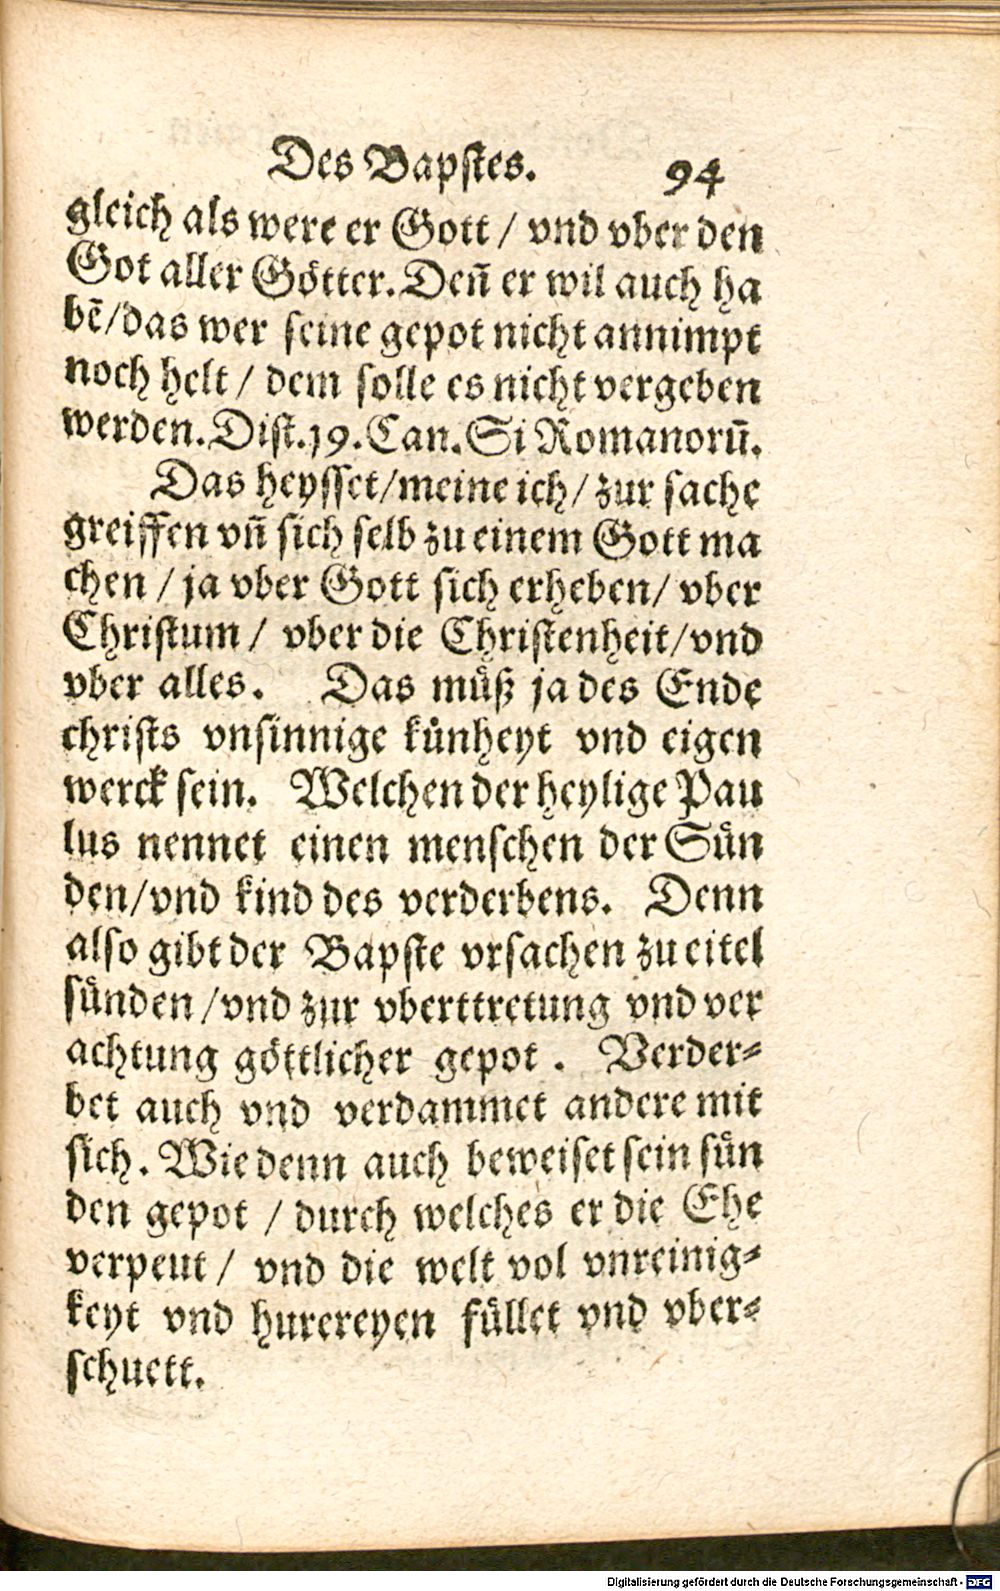 Des Bapstes. 94
gleich als were er Gott / vnd vber den
Got aller Götter. Deñ er wil auch ha
bẽ/das wer seine gepot nicht annimpt
noch helt / dem solle es nicht vergeben
werden. Dist. 19. Can. Si Romanorũ.
Das heysset/meine ich/ zur sache
greiffen vñ sich selb zu einem Gott ma
chen / ja vber Gott sich erheben/ vber
Christum / vber die Christenheit/vnd
vber alles. Das müß ja des Ende
christs vnsinnige künheyt vnd eigen
werck sein. Welchen der heylige Pau
lus nennet einen menschen der Sün
den/vnd kind des verderbens. Denn
also gibt der Bapste vrsachen zu eitel
sünden /vnd zur vberttretung vnd ver
achtung göttlicher gepot . Verder-
bet auch vnd verdammet andere mit
sich. Wie denn auch beweiset sein sün
den gepot / durch welches er die Ehe
verpeut / vnd die welt vol vnreinig-
keyt vnd hurereyen füllet vnd vber-
schuett.
Digitalisierung gefördert durch die Deutsche Forschungsgemeinschaft - DFG